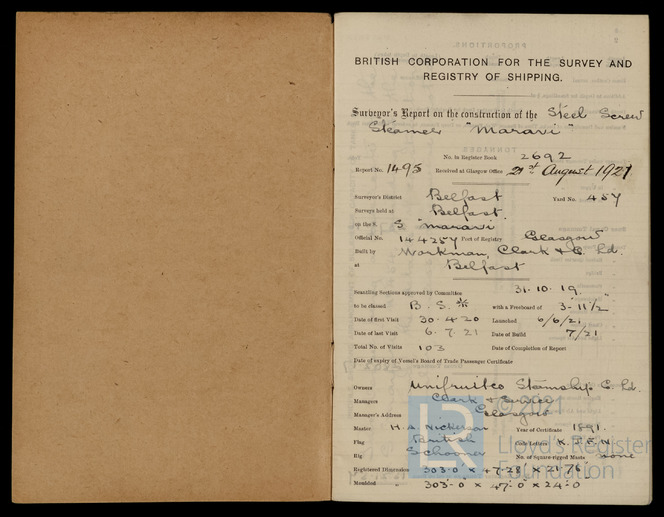 BRITISH CORPORATION FOR THE SURVEY AND
REGISTRY OF SHIPPING.
Surveyor's Report on the construction of the Steel Screw
Steamer "Maravi"
No. in Register Book 2692
Report No. 1495 Received at Glasgow Office 21st August 1921
Surveyor's District Belfast Yard No. 457
Surveys held at Belfast.
on the S. S "Maravi"
Official No. 144257 Port of Registry Glasgow
Built by Workman, Clark & Co. Ld.
at Belfast
Scantling Sections approved by Committee 31.10.19.
to be classed B. S. * with a Freeboard of 3-11½"
Date of first Visit 30.4.20 Launched 6/6/21
Date of last Visit 6.7.21 Date of Build 7/21
Total No. of Visits 103 Date of Completion of Report
Date of expiry of Vessel's Board of Trade Passenger Certificate
Owners Unifruitco Steamship Co. Ld.
Managers Clark & Service
Manager's Address Glasgow
Master H. A. Nickerson Year of Certificate 1891.
Flag British Code Letters
Rig Schooner No. of Square-rigged Masts none
Registered Dimension 303.0' x 47.28' x 21.76'
Moulded " 303'-0" x 47'-0" x 24'-0"
© 2021
LR
Lloyd's Register
Foundation